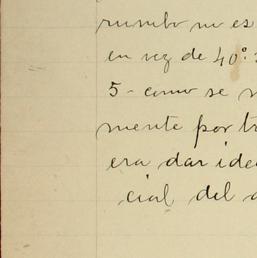 rumbo no es
en vez de 40º:
5 - como se
mente por tr
era dar idea
cial del a